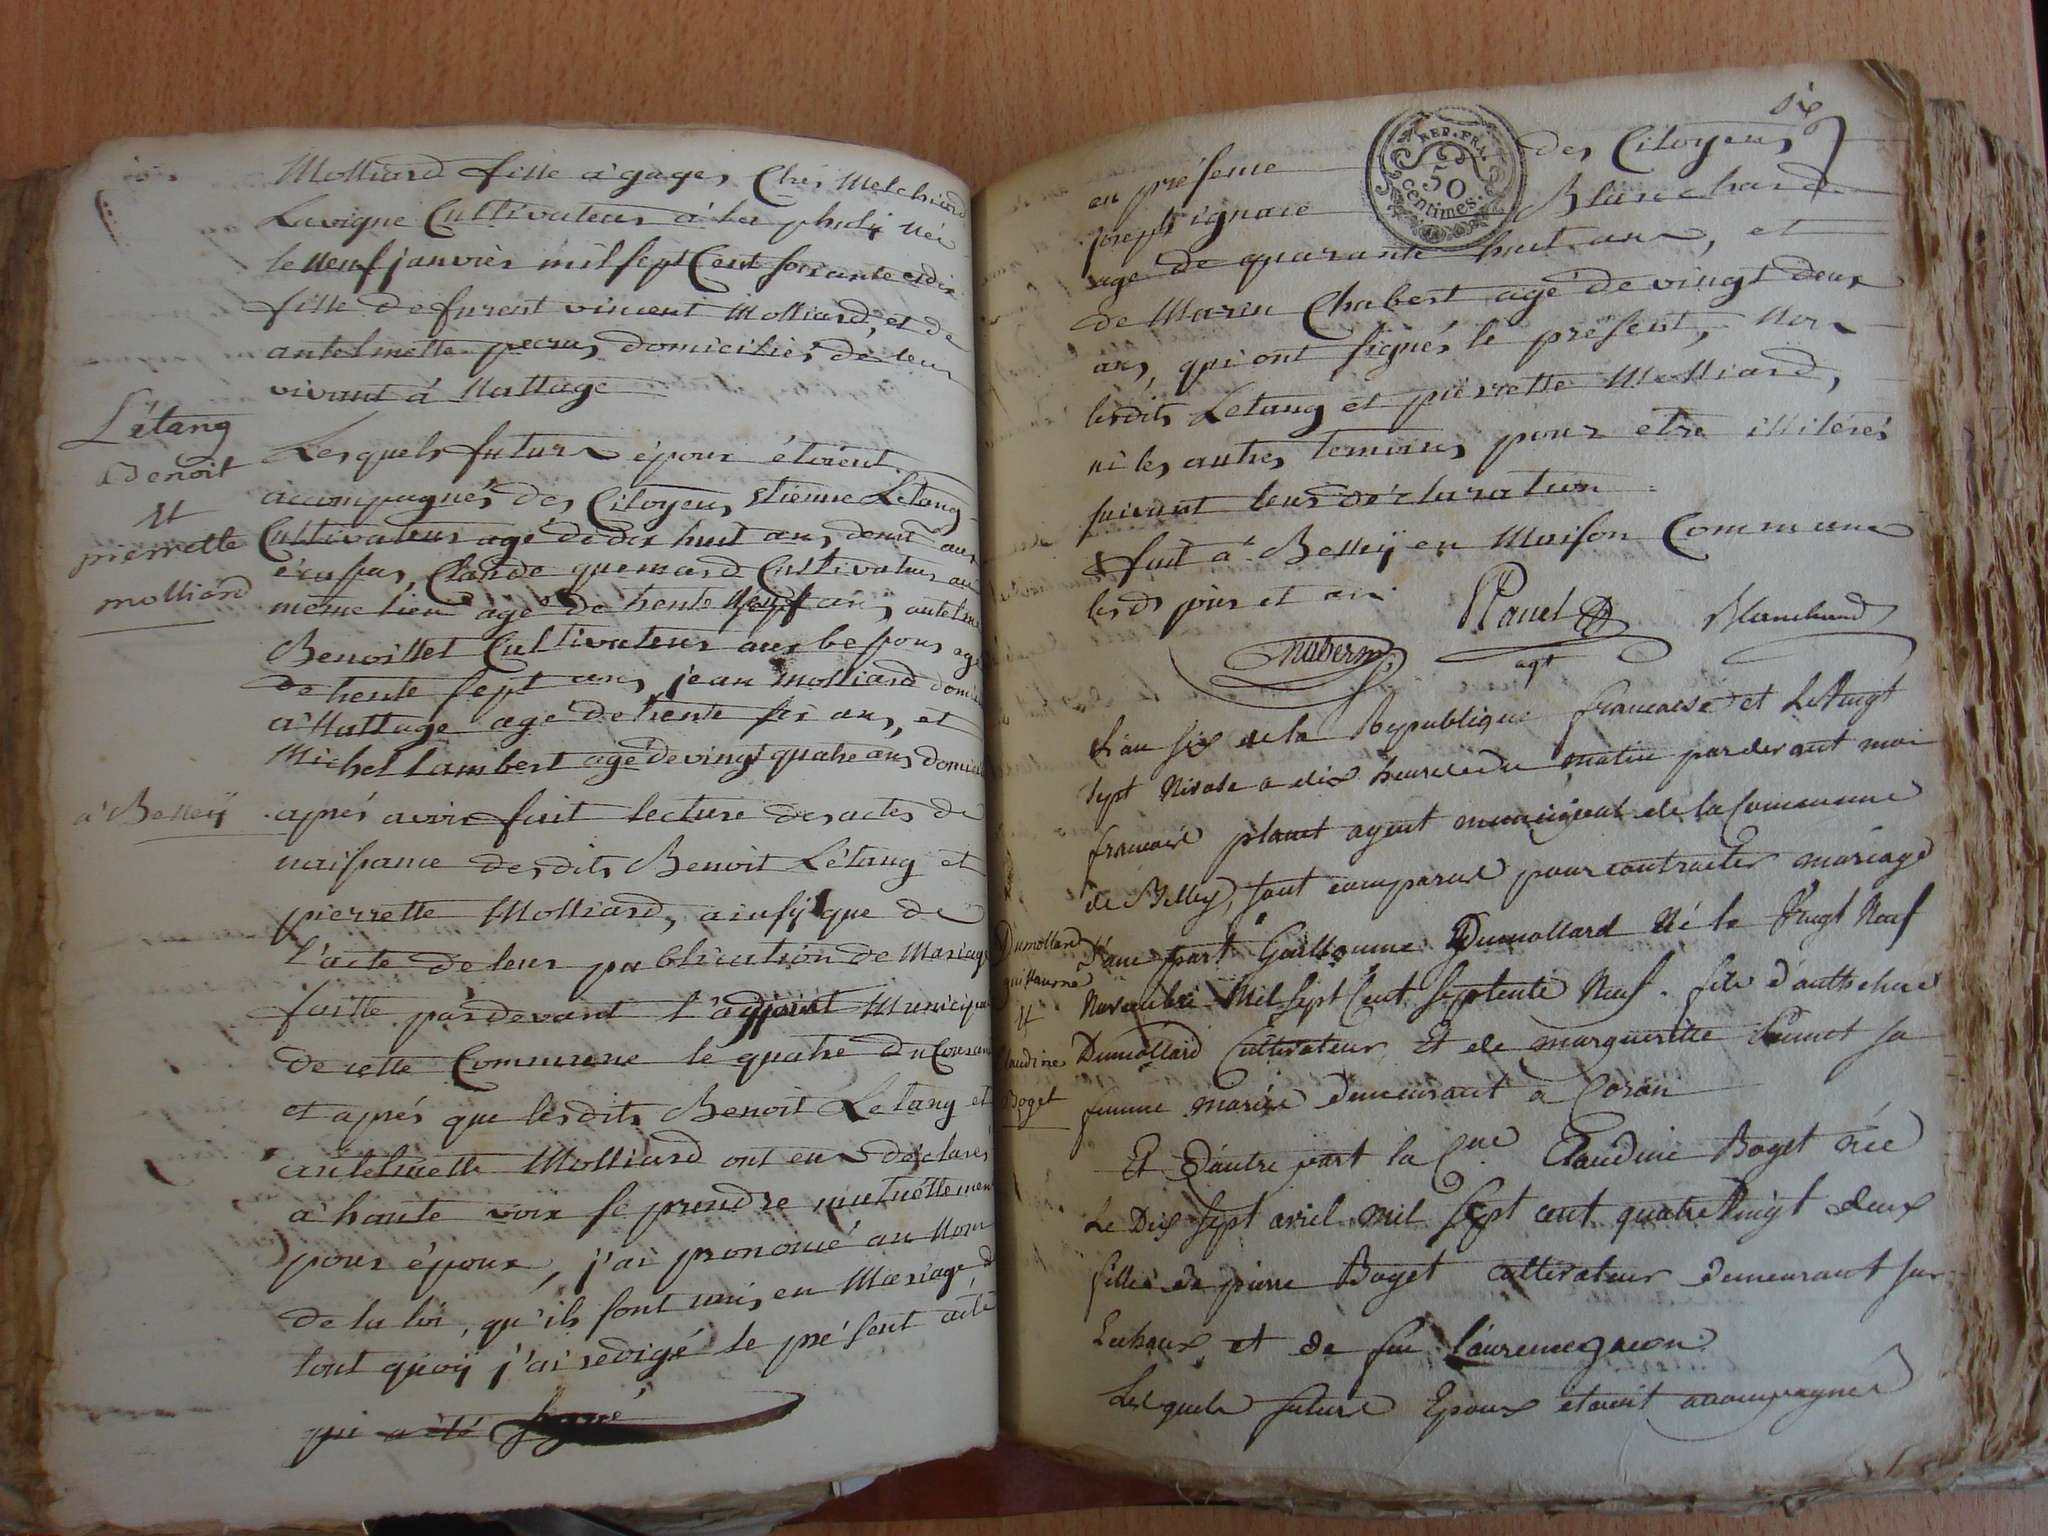 Molliard fille à gages, Chez Melchiord
Lavigne Cultivateur à La née
le neuf janvier mil sept Cent soixante et dix
fille de furent vincent Molliard, et de
antelmette domiciliés de leur
vivant à Nattage
L'étang
Benoit
et
pierrette
molliard
Lesquels futurs époux étoient
accompagnés des Citoyens, Etienne Letang
Cultivateur agé de dix huit ans, demt aux
écapas, Claude quemard Cultivateur au
même lieu agé de trente Neuf ans, antelme
Benoillet Cultivateur aux agé
de trente sept ans, jean Molliard domicilié
à Nattage agé de trente six ans, et
Michel Lambert agé de vingt quatre ans, domicilié
à Belleÿ aprés avoir fait lecture des actes de
naissance desdits Benoit Létang et
pierrette Molliard, ainsÿ que de
l'acte de leur publication de Mariage
faitte pardevant l'adjoint Municipal
de cette Commune le quatre du Courant
et aprés que lesdits Benoit Letang et
antelmette Molliard ont eus déclarés
à haute voix se prendre mutuéllement
pour époux, j'ai prononcé au Nom
de la loi, qu'ils sont unis en Mariage, de
tout quoÿ j'ai redigé le présent acte
qui a été signé
six
REP. FRA.
50
centimes.
en présence des Citoyens
joseph ignace Blanchard
agé de quarante huit ans, et
de Marin Chabert agé de vingt deux
ans, qui ont signés le présent, Non
lesdits Letang et pierrette Molliard,
ni les autres temoins pour etre illiterés
suivant leur déclaration
fait à Belleÿ en Maison Commune
lesd. jour et an
Planet Blanchard
agt
L'an six de la Republique francaise et Le Vingt
sept Nivose a dix heures du matin pardevant moi
francois planet agent municipal de la Commune
de Belley, sont comparus pour contracter mariage
Dumollard
guillaume
et
Claudine
Boget
D'une part Guillaume Dumollard Né le Vingt Neuf
Novembre Mil Sept Cent Septente Neuf. fils d'anthelme
Dumollard Cultivateur Et de margueritte sa
femme mariés Demeurant a Coron
Et D'autre part la Cne Claudine Boget née
Le Dix Sept avril mil Sept cent quatre Vingt deux
fille de pierre Boget cultivateur Demeurant sur
et de feu
Lesquels futurs Epoux étoient accompagnés